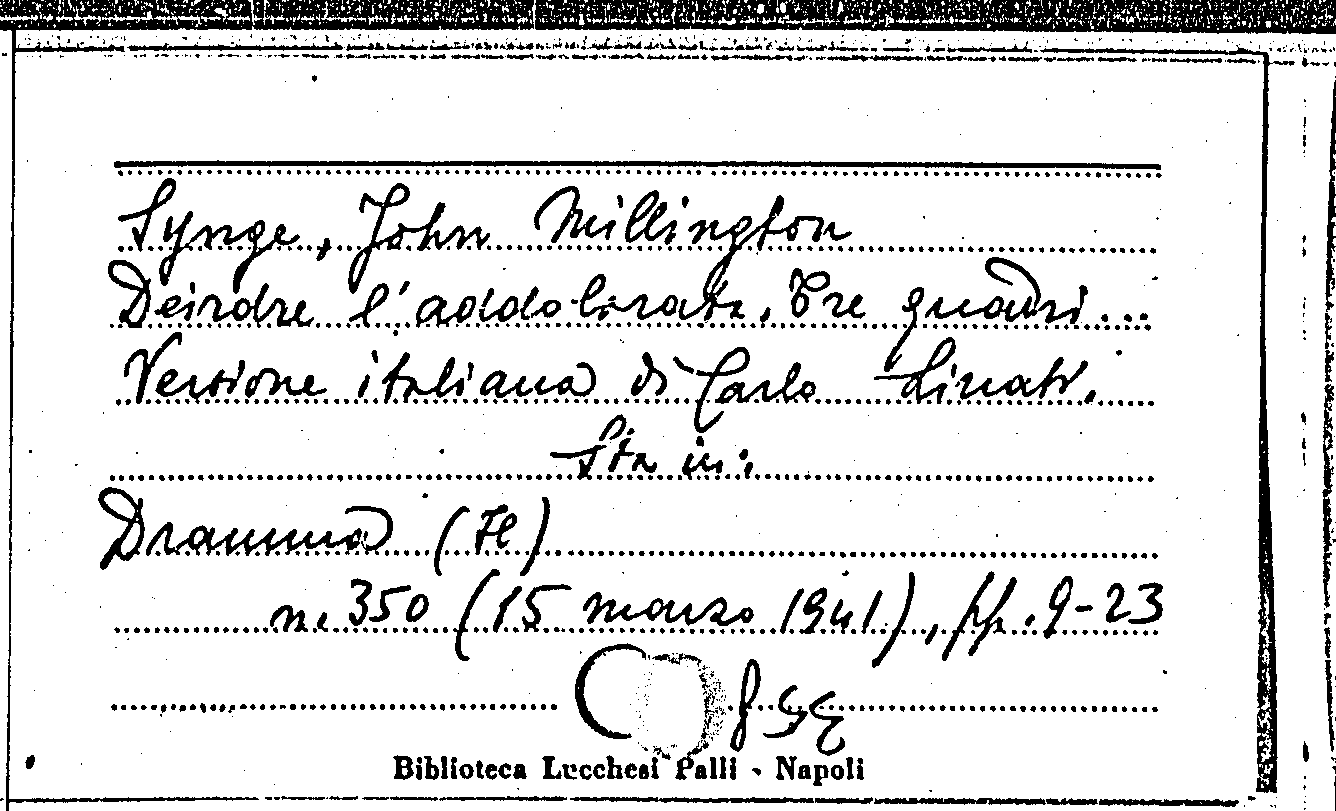 Synge, John Millington
Deirdre l'addolorata. Tre quadri...
Versione italiana di Carlo Linati.
Sta in:
Dramma (Il)
n. 350 (15 marzo 1941), pp. 9-23
Biblioteca Lucchesi Palli - Napoli